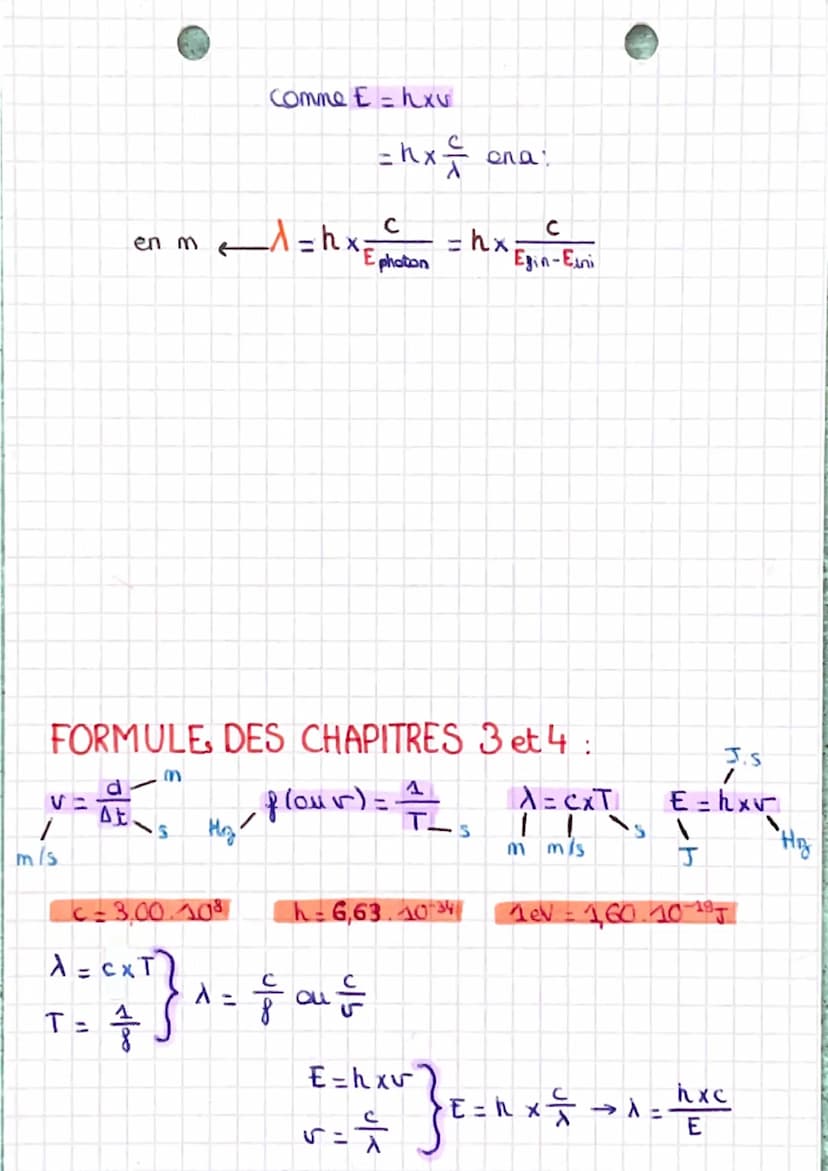 comme E = h×ν
= h × c/λ on a :
en m ← λ = h × c/E photon = h × c/Efin - Eini
FORMULES DES CHAPITRES 3 et 4 :
v = d/Δt m s m/s
f (ou ν) = 1/T Hz s
λ = c×T m m/s s
E = h×ν J J.s Hz
c = 3,00.10⁸ h = 6,63.10⁻³⁴ 1eV = 1,60.10⁻¹⁹J
λ = c×T
T = 1/f } λ = c/f ou c/ν
E = h×ν
ν = c/λ } E = h × c/λ → λ = h×c/E